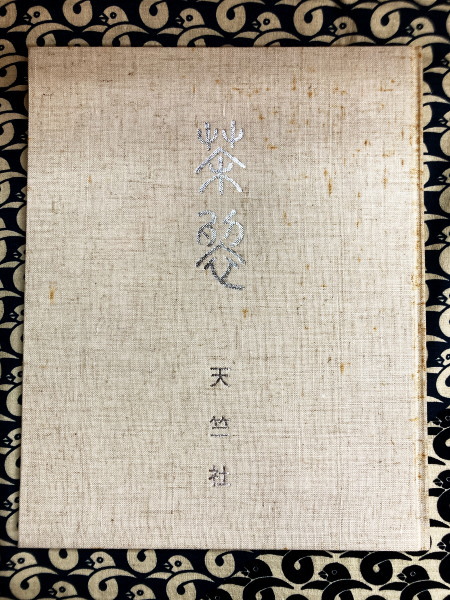 茶裂
天竺社